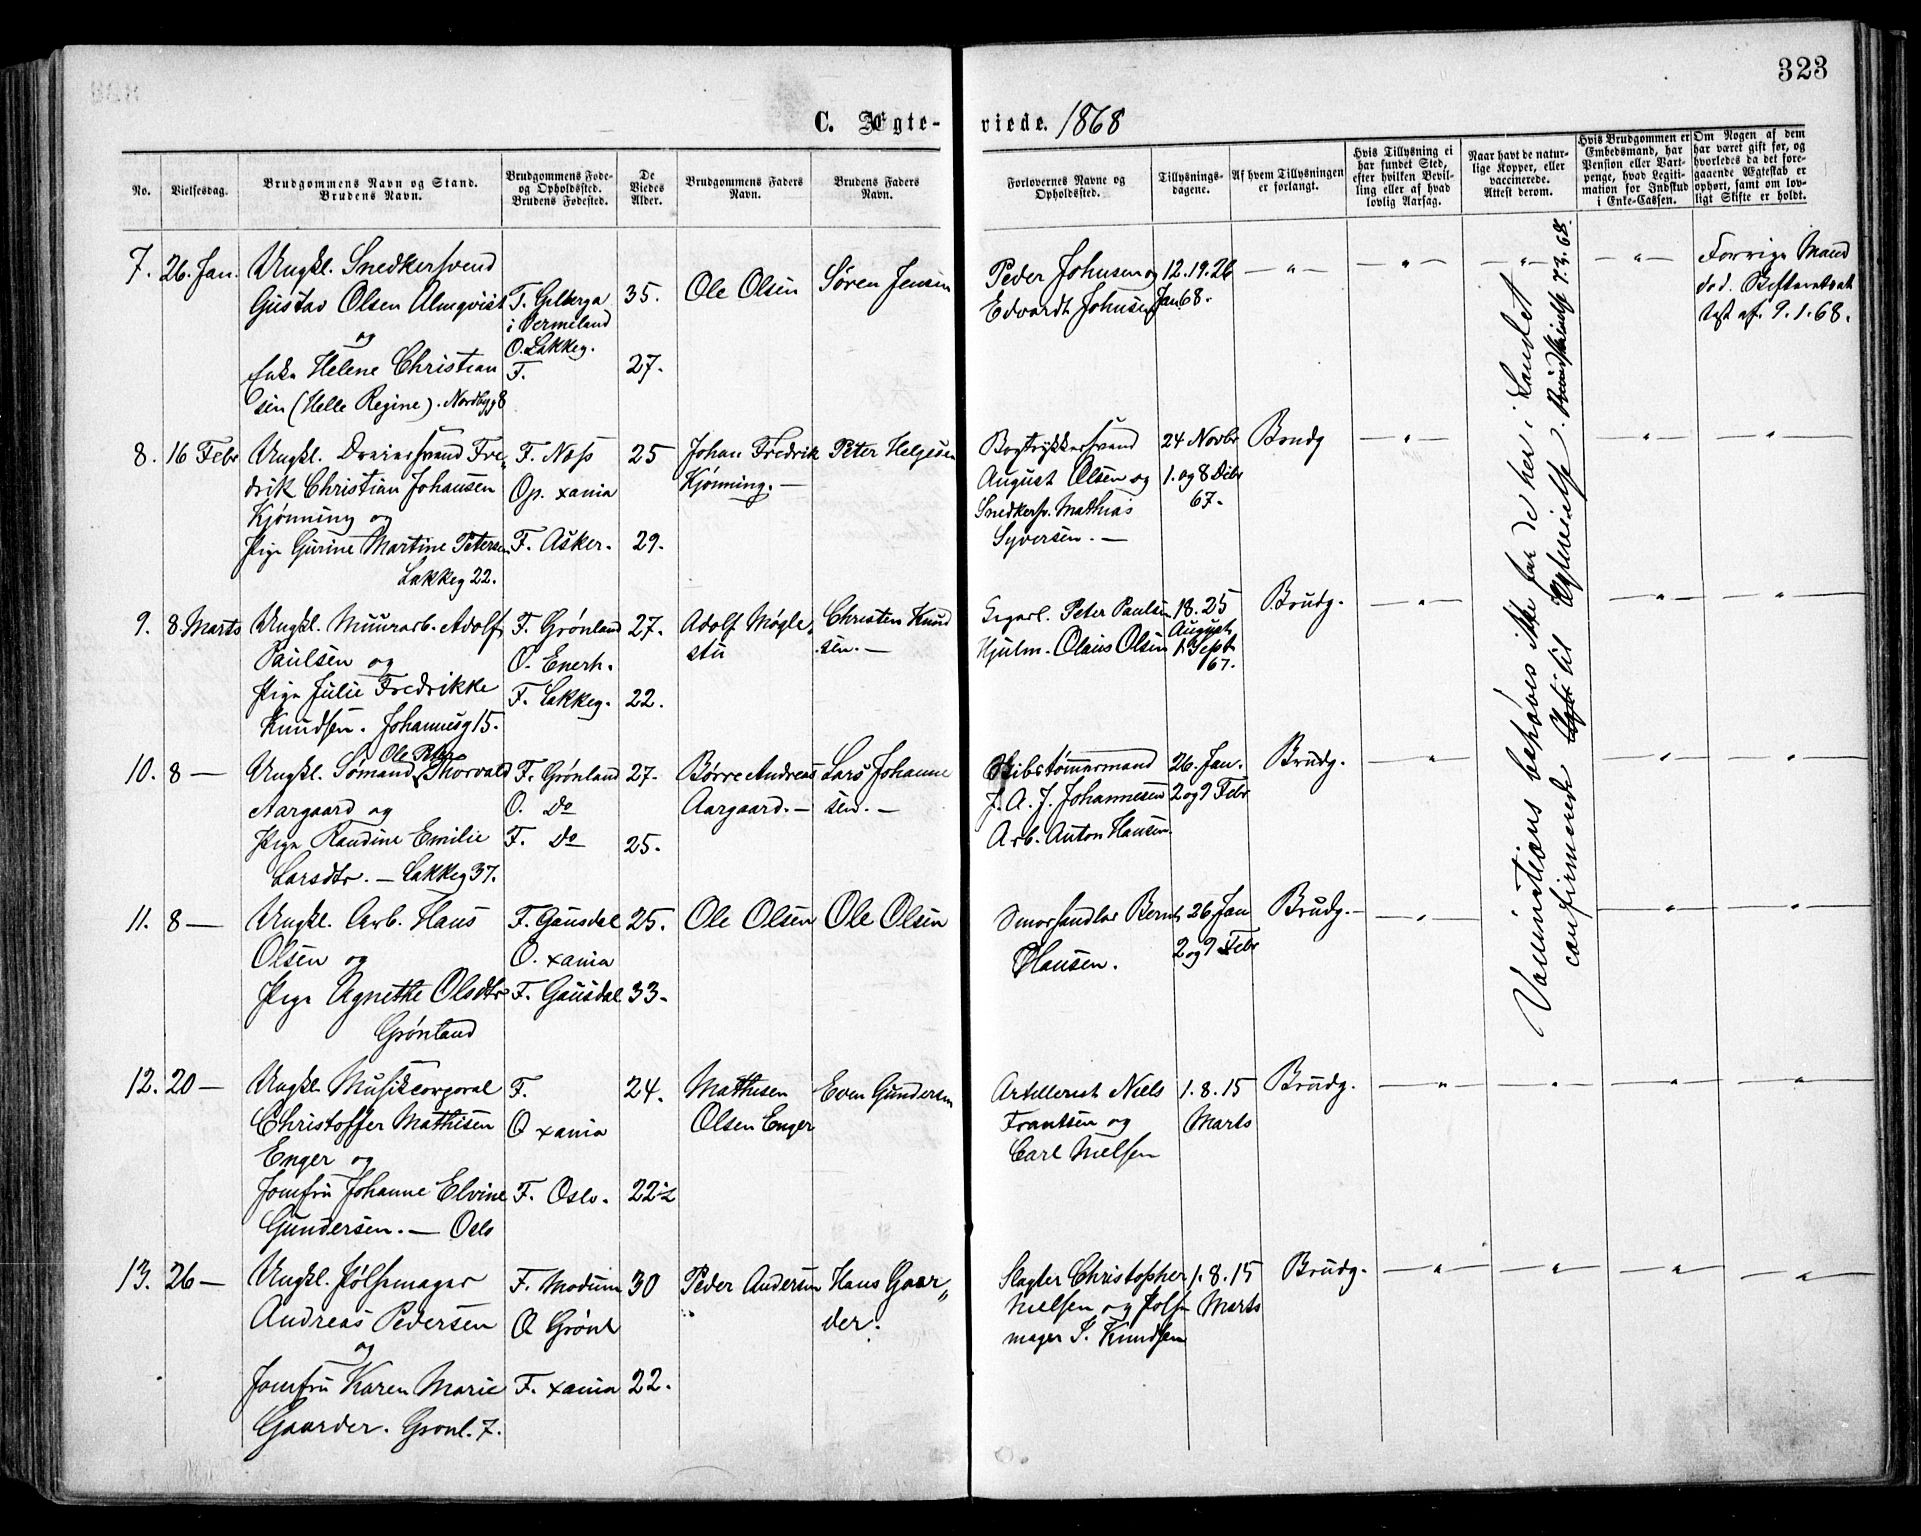 323
C. Ægte- viede. 1868
No.
Vielsesdag.
Brudgommens Navn og Stand.
Brudens Navn.
Brudgommens Føde-
og Opholdssted.
Brudens Fødested.
De
Viedes
Alder.
Brudgommens Faders
Navn.
Brudens Faders
Navn.
Forlovernes Navne og
Opholdssted.
Tillysnings-
dagene.
Af hvem Tillysningen
er forlangt.
Hvis Tillysning ei
har fundet Sted,
efter hvilken Bevil-
ling eller af hvad
lovlig Aarsag.
Naar havt de natur-
lige Kopper, eller
vaccinerede.
Attest derom.
Hvis Brudgommen er
Embedsmand, har
Pension eller Vart-
penge, hvad Legiti-
mation for Indskud
i Enke-Cassen.
Om Nogen af dem
har været gift før, og
hvorledes da det fore-
gaaende Ægteskab er
ophørt, samt om lov-
ligt Skifte er holdt.
7. 26. Jan.
Ungkl. Snedkersvend
Gustav Olsen Almqvist
og
Enke Helene Christian
sen (Helle Regine). Nordbyg 8
F. Gilberga
i Vermeland
O. Lakkeg.
F.
35.
27.
Ole Olsen
Søren Jensen
Peder Johnsen og
Edvardt Johnsen
12. 19. 26
Jan 68.
— „ —
— „ —
— „ —
— „ —
Forrige Mand
død. Skifteretsat
test af. 9. 1. 68.
8. 16 Febr
Ungkl. Dreiersvend Fre„
drik Christian Johansen
Kjønning og
Pige Gurine Martine Petersen
Lakkeg 22.
F. Næs
Op. xania
F. Asker.
25
29.
Johan Fredrik
Kjønning. —
Peter Helgesen
Bogtrykkersvend
August Olsen og
Snedkersv. Mathias
Syversen. —
24 Novbr
1. og 8 Debr
67.
Brudg
— „ —
— „ —
— „ —
9. 8 Marts
Ungkl. Muurarb. Adolf
Paulsen og
Pige Julie Fredrikke
Knudsen. Johannesg 15.
F. Grønland
O. Enerh.
F. Lakkeg.
27.
22.
Adolf Mogle„
stu
Christen Knud
sen. —
Cigarl. Peter Paulsen
Hjulm. Olaus Olsen
18. 25
August
1 Septb
67.
Brudg.
— „ —
— „ —
— „ —
10. 8 —
Ole Peter
Ungkl. Sømand Thorvald
Aargaard og
Pige Randine Emilie
Larsdtr. — Lakkeg 37.
F. Grønland
O. Do
F. Do
27.
25.
Børre Andreas
Aargaard. —
Lars Johanne
sen. —
Skibstømmermand
J. A. J. Johannesen
Arb. Anton Hansen
26. Jan.
2 og 9 Febr
Brudg.
— „ —
— „ —
— „ —
11. 8 —
Ungkl. Arb. Hans
Olsen og
Pige Agnethe Olsdtr
Grønland
F. Gausdal
O. xania
F. Gausdal
25.
33.
Ole Olsen
Ole Olsen
Smørhandler Bernt
Hansen.
26 Jan
2 og 9 Febr
Brudg. —
— „ —
— „ —
— „ —
Vaccinations behøves ikke paa de her i Landet
confirmerede til Ægtevielse. 7. 3. 68.
12. 20 —
Ungkl. Musikcorporal
Christoffer Mathisen
Enger og
Jomfru Johanne Elvine
Gundersen. — Oslo
F.
O xania
F. Oslo.
24.
22½
Mathisen
Olsen Enger
Even Gundersen
Artillerist Niels
Frantsen og
Carl Nielsen
1. 8. 15
Marts
Brudg.
— „ —
— „ —
— „ —
— „ —
13. 26 —
Ungkl. Pølsemager
Andreas Pedersen
og
Jomfru Karen Marie
Gaarder. Gronl. 7.
F. Modum
O Grønl
F. xania
30
22.
Peder Andersen
Hans Gaar„
der.
Slagter Christopher
Nielsen og Pølse
mager S. Knudsen
1. 8. 15
Marts
Brudg.
— „ —
— „ —
— „ —
— „ —